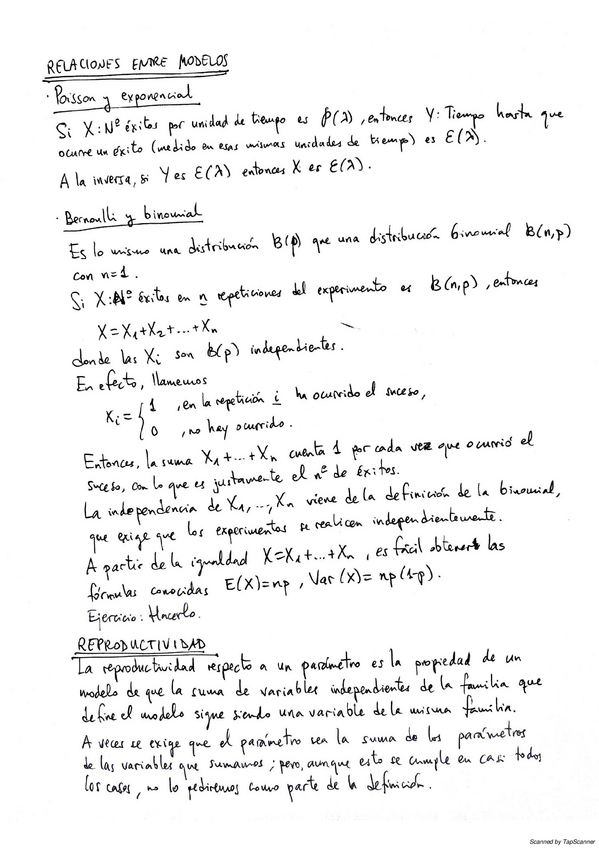 RELACIONES ENTRE MODELOS
· Poisson y exponencial
Si X: Nº éxitos por unidad de tiempo es P(λ), entonces Y: Tiempo hasta que
ocurre un éxito (medido en esas mismas unidades de tiempo) es E(λ).
A la inversa, si Y es E(λ) entonces X es E(λ).
· Bernoulli y binomial
Es lo mismo una distribución B(p) que una distribución binomial B(n,p)
con n=1.
Si X: Nº éxitos en n repeticiones del experimento es B(n,p), entonces
X=X₁+X₂+...+Xn
donde las Xi son B(p) independientes.
En efecto, llamemos
Xi = { 1 , en la repetición i ha ocurrido el suceso,
0 , no hay ocurrido.
Entonces, la suma X₁+...+Xn cuenta 1 por cada vez que ocurrió el
suceso, con lo que es justamente el nº de éxitos.
La independencia de X₁,...,Xn viene de la definición de la binomial,
que exige que los experimentos se realicen independientemente.
A partir de la igualdad X=X₁+...+Xn, es fácil obtener las
fórmulas conocidas E(X)=np, Var(X)=np(1-p).
Ejercicio: Hacerlo.
REPRODUCTIVIDAD
La reproductividad respecto a un parámetro es la propiedad de un
modelo de que la suma de variables independientes de la familia que
define el modelo sigue siendo una variable de la misma familia.
A veces se exige que el parámetro sea la suma de los parámetros
de las variables que sumamos; pero, aunque esto se cumple en casi todos
los casos, no lo pediremos como parte de la definición.
Scanned by TapScanner